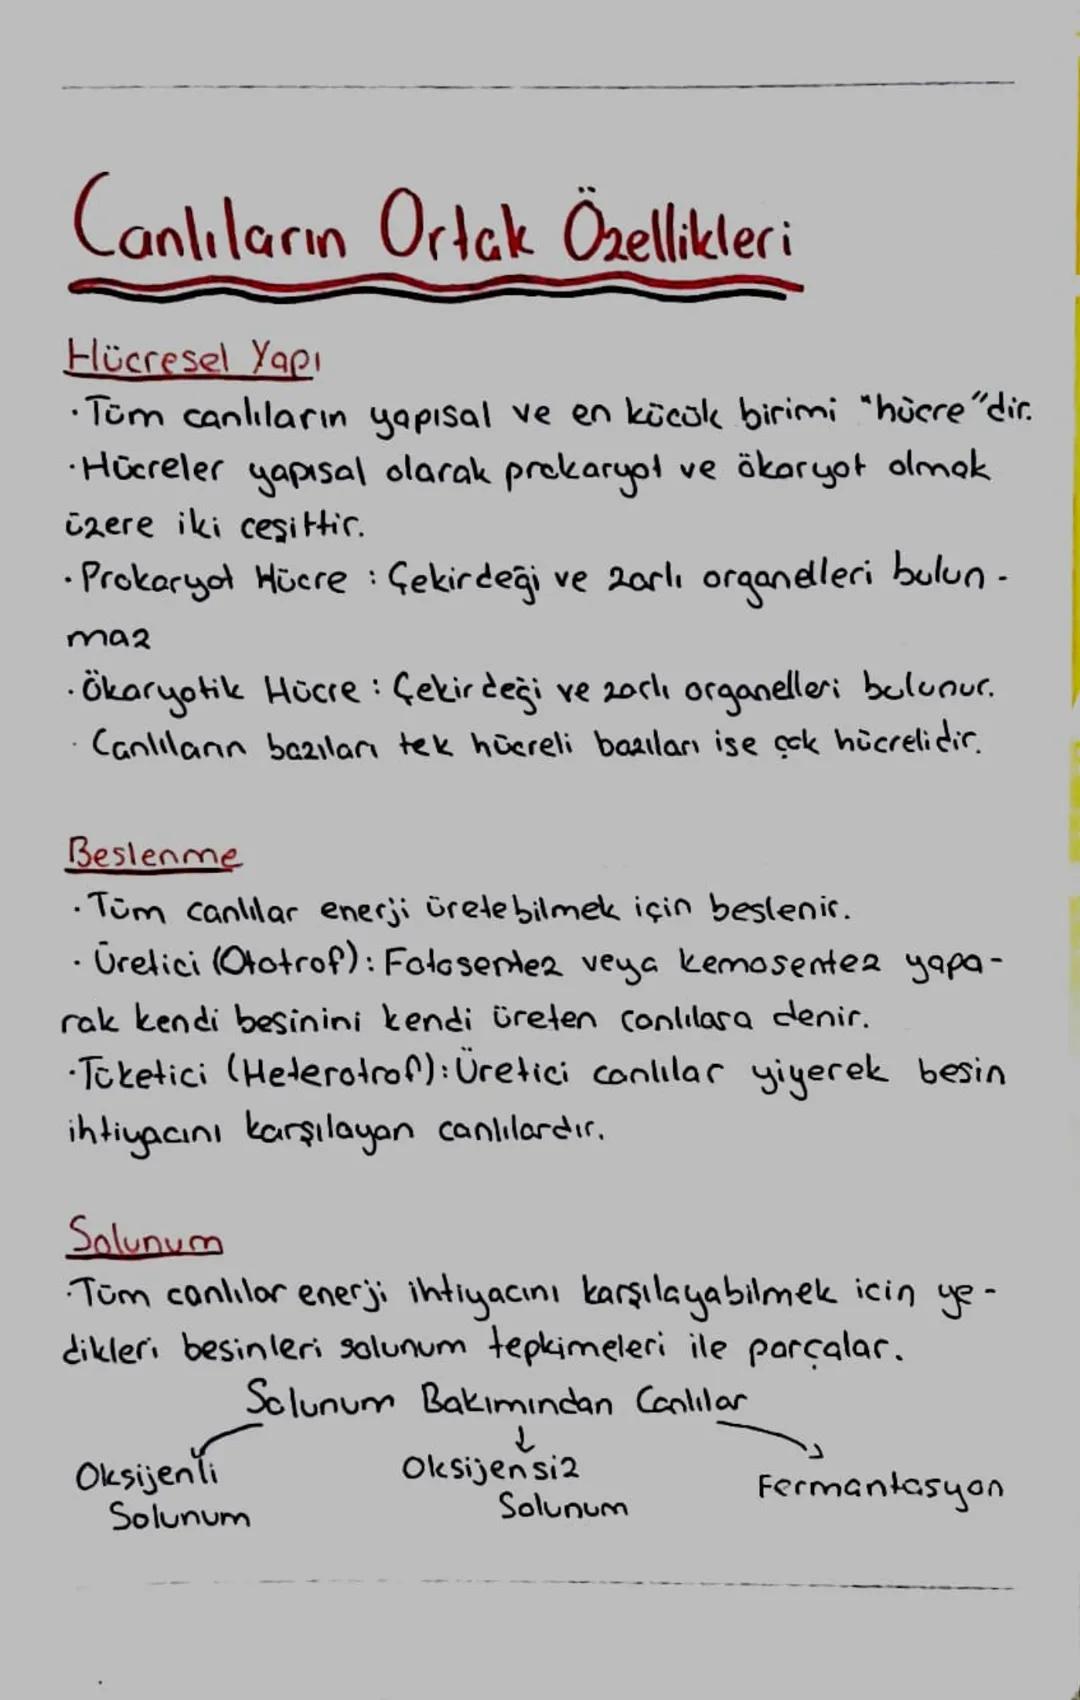 Canlıların Ortak Özellikleri
Hücresel Yapı
· Tüm canlıların yapısal ve en kücük birimi "hücre"dir.
· Hücreler yapısal olarak prokaryot ve ökaryot olmak
üzere iki ceşittir.
· Prokaryot Hücre : Çekirdeği ve zarlı organelleri bulun -
maz
· Ökaryotik Hücre : Çekirdeği ve zarlı organelleri bulunur.
· Canlıların bazıları tek hücreli bazıları ise çok hücrelidir.
Beslenme
· Tüm canlılar enerji üretebilmek için beslenir.
· Üretici (Ototrof) : Fotosentez veya kemosentez yapa -
rak kendi besinini kendi üreten canlılara denir.
· Tüketici (Heterotrof) : Üretici canlılar yiyerek besin
ihtiyacını karşılayan canlılardır.
Solunum
· Tüm canlılar enerji ihtiyacını karşılayabilmek icin ye -
dikleri besinleri solunum tepkimeleri ile parçalar.
Solunum Bakımından Canlılar
Oksijenli
Solunum
Oksijensiz
Solunum
Fermantasyon